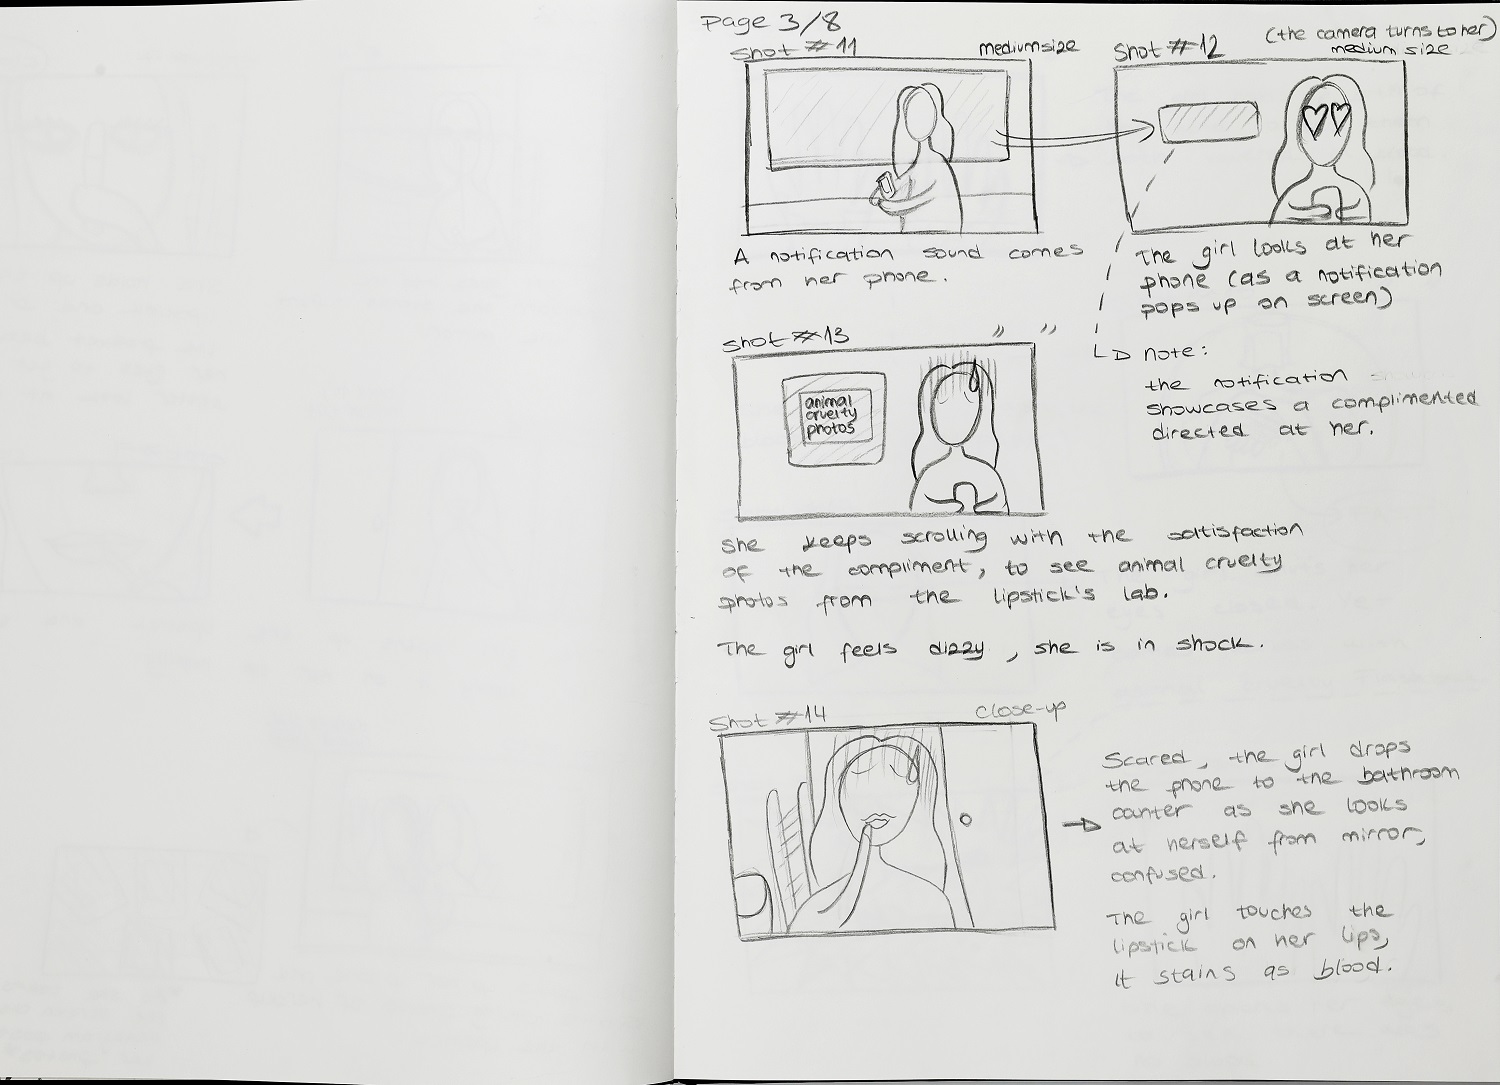 Page 3/8
Shot #11
medium size
A notification sound comes
from her phone.
Shot #12
(the camera turns to her)
medium size
The girl looks at her
phone (as a notification
pops up on screen)
note:
the notification
showcases a complimented
directed at her.
Shot #13
" "
animal
cruelty
photos
She keeps scrolling with the satisfaction
of the compliment, to see animal cruelty
photos from the lipstick's lab.
The girl feels dizzy, she is in shock.
Shot #14
close-up
Scared, the girl drops
the phone to the bathroom
counter as she looks
at herself from mirror,
confused.
The girl touches the
lipstick on her lips,
it stains as blood.